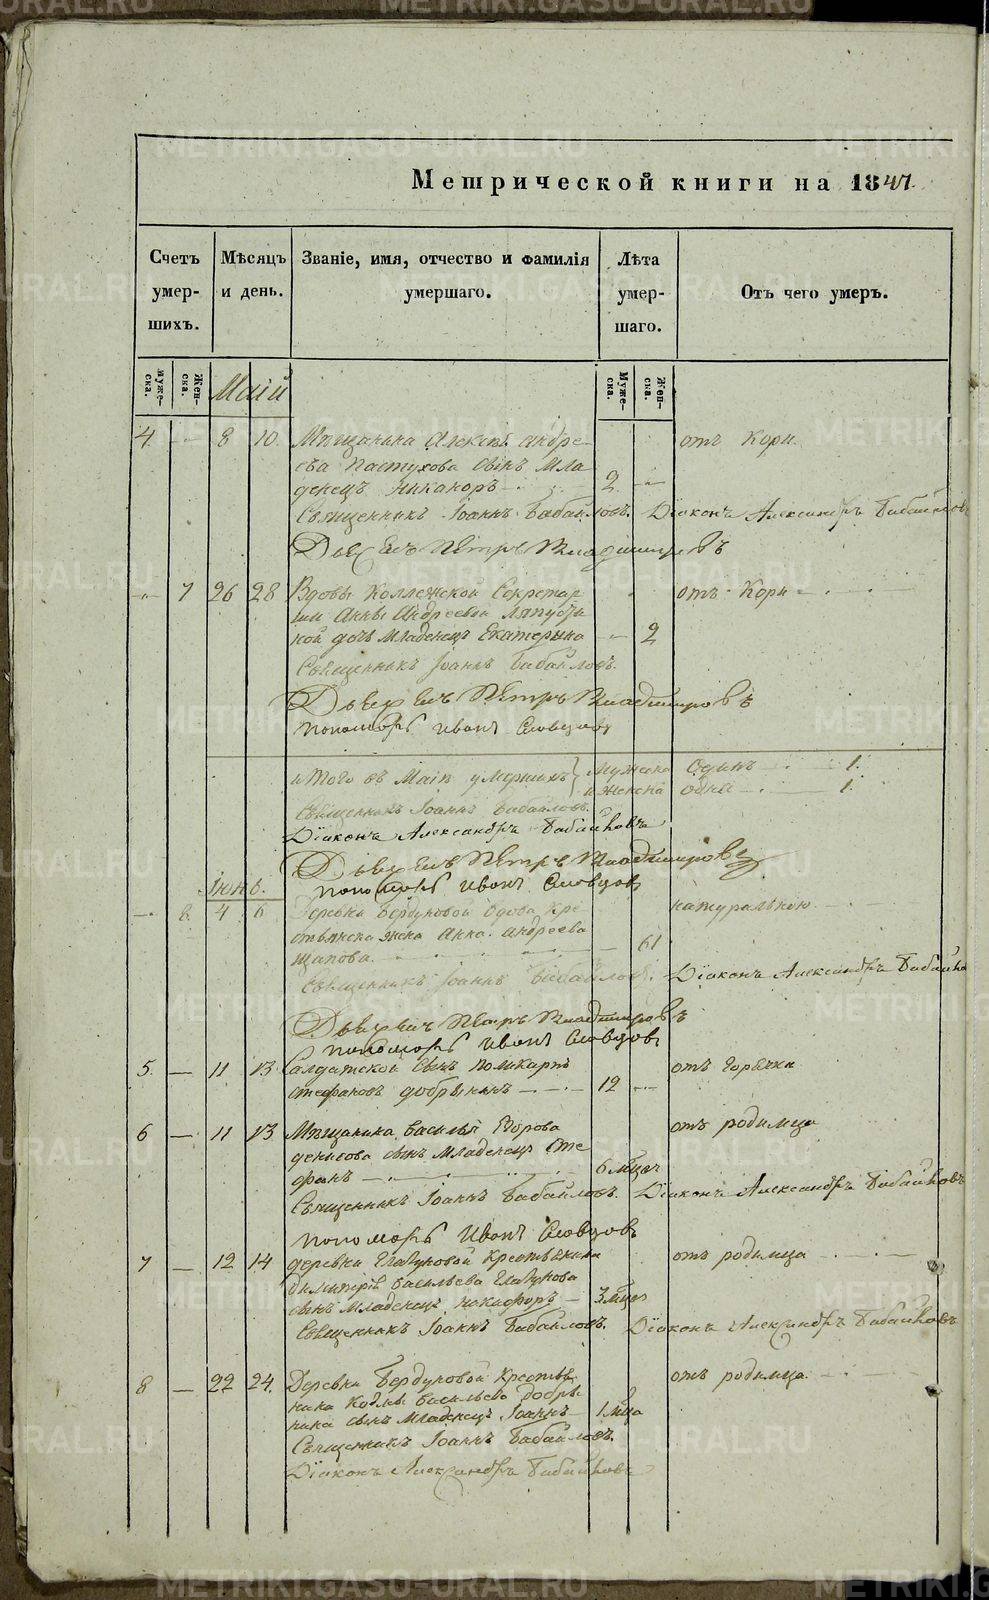 Метрической книги на 1847.
Счетъ умер-шихъ.
Мѣсяцъ и день.
Званіе, имя, отчество и фамилія умершаго.
Лѣта умер-шаго.
Отъ чего умеръ.
Муже-ска.
Жен-ска.
Муже-ска.
Жен-ска.
Маій
4. 8 10. Мѣщанина Алексѣя Андре- отъ Кори.
ева Пастухова сынъ мла-
денецъ Никаноръ 2
Священникъ Іоаннъ Бабайловъ. Діаконъ Александръ Бабайловъ
Дьячекъ Петръ Владимировъ
7 26 28 Вдовы Коллежской Секретар- отъ Кори
ши Анны Андреевой
ной дочь младенецъ Екатерина 2
Священникъ Іоаннъ Бабайловъ.
Дьячекъ Петръ Владимировъ
пономарь Иванъ Словцовъ
итого въ Маіѣ умершихъ Мужеска Одинъ 1.
и женска одна 1.
Священникъ Іоаннъ Бабайловъ.
Діаконъ Александръ Бабайловъ
Дьячекъ Петръ Владимировъ
Іюнь. пономарь Иванъ Словцовъ
8. 4 6 Деревни Бердуковой вдова кре- натуральною
стьянска жена Анна Андреева
Щапова. 61
Священникъ Іоаннъ Бабайловъ. Діаконъ Александръ Бабайло
Дьячекъ Петръ Владимировъ
пономарь Иванъ Словцовъ
5. 11 13 Салдатской сынъ Поликарпъ отъ Горячки
Стефановъ Добрынинъ 12
6 11 13 Мѣщанина Василья Егорова отъ родимца
Денисова сынъ младенецъ Сте
фанъ 6 мѣсец
Священникъ Іоаннъ Бабайловъ. Діаконъ Александръ Бабайловъ
пономарь Иванъ Словцовъ
7 12 14 деревни Глазуновой Крестьянина отъ родимца
Димитрія Васильева Глазунова
сынъ младенецъ Никифоръ 3 мѣсец
Священникъ Іоаннъ Бабайловъ. Діаконъ Александръ Бабайловъ
8 22 24. Деревни Бердуковой Крестья отъ родимца.
нина Козмы Васильева Добры
нина сынъ младенецъ Іоаннъ 1 мѣца
Священникъ Іоаннъ Бабайловъ.
Діаконъ Александръ Бабайловъ
METRIKI.GASO-URAL.RU